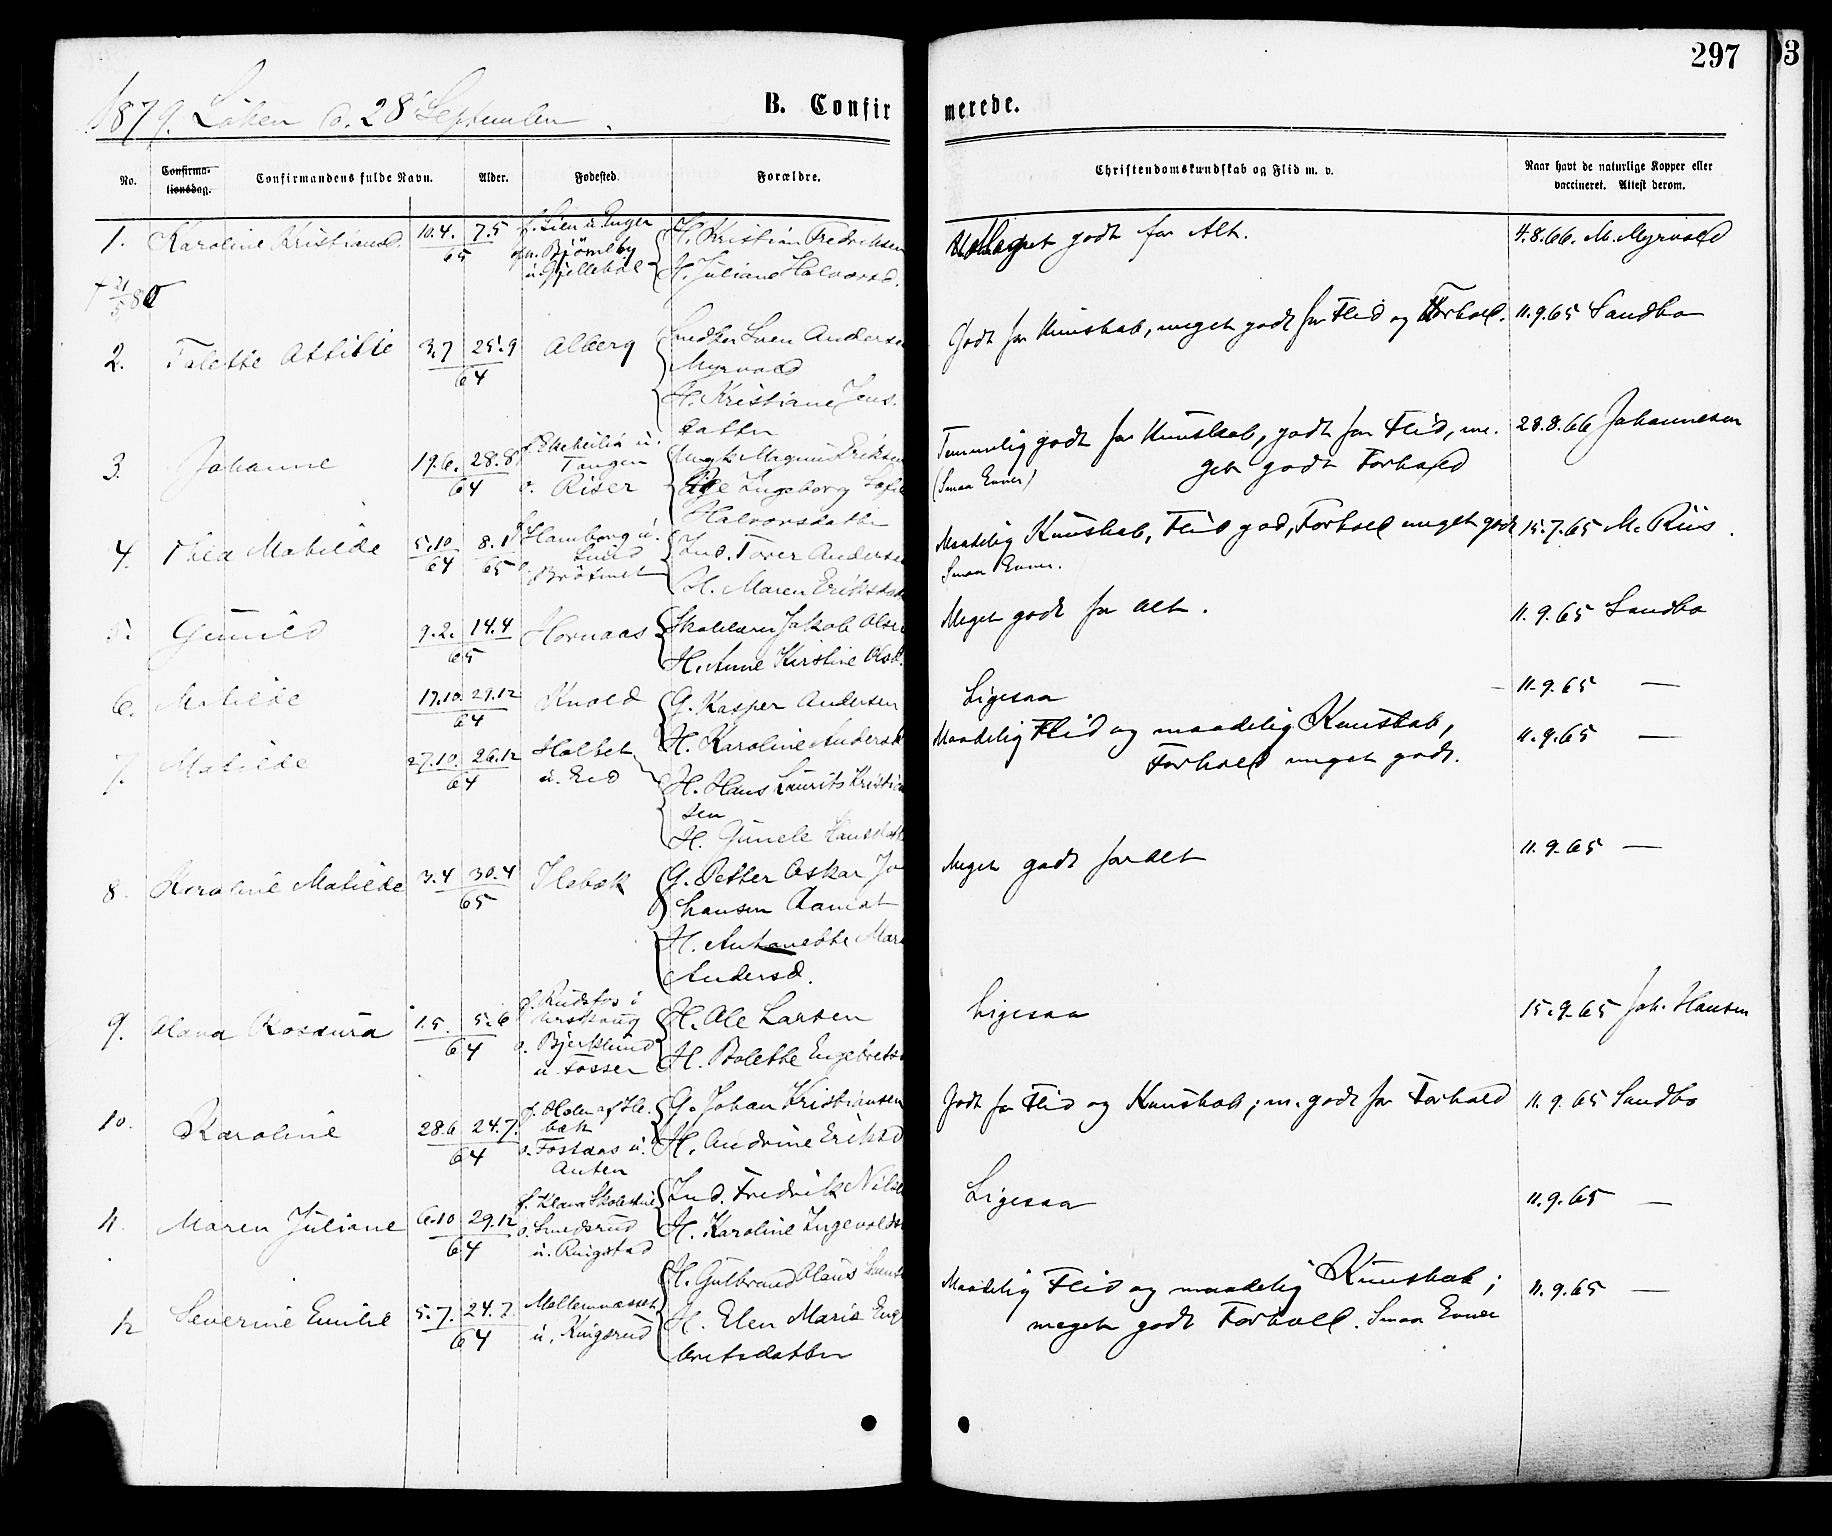 297
3
1879. Löken d. 28 September.
B. Confirmerede.
No.
Confirmationsdag.
Confirmandens fulde Navn.
Alder.
Fødested.
Forældre.
Christendomskundskab og Flid m. v.
Naar havt de naturlige Kopper eller
vaccineret. Attest derom.
1. Karoline Kristiansd. 10.4. 7.5 65
f. Lien u. Enger
Björneby
u. Gjellebøl
H. Kristian Fredriksen
H. Juliane Halvorsd.
Meget godt for Alt.
4.8.66. M. Myrvold
† 21/5 80
2. Talette Attilie 3.7 25.9 64
Alberg
Smdker Sven Anderse
Myrvold
H. Kristiane Jens.
datter
Godt for Kunskab, meget godt for Flid og Forhold.
11.9.65 Sandbo
3. Johanne 19.6. 28.8 64
Tangen
o. Riser
Ungk. Magnus Eriksen
Pige Ingeborg Sofie
Halvorsdatter
Temmelig godt for Kunskab, godt for Flid, me-
get godt Forhold
(Smaa Evner)
28.8.66 Johannesen
4. Thea Matilde 5.10 64 8.1 65
f. Hamborg u.
Lund
o. Bråtenet
Ind. Tover Anderse
H. Maren Eriksdat
Maadelig Kunskab, Flid god, Forhold meget godt
Smaa Evner.
15.7.65 M. Riis.
5. Gunild 9.2. 14.4 65
Hornaas
Skolelærer Jakob Olse
H. Anne Kirstine Olsd.
Meget godt for Alt.
11.9.65 Sandbo
6. Matilde 17.10 29.12 64
Kvold
G. Kasper Andersen
H. Karoline Andersd
Ligesaa
11.9.65 —
7. Matilde 27.10. 26.12 64
Holtet
u. Eid
H. Hans Laurits Kristian
sen
H. Gunele Hansdatt
Maadelig Flid og maadelig Kunskab,
Forhold meget godt.
11.9.65 —
8. Karoline Matilde 3.4 30.4 65
Ilebæk
G. Petter Oskar Jo
hansen Aamot
H. Antonette Mari
Andersd.
Meget godt for Alt
11.9.65 —
9. Hana Rosaura 1.5. 5.6 64
f. Rudsfos i
Urskoug
o. Bjerklund
u. Fosser
H. Ole Larsen
H. Bolette Engebretse
Ligesaa
15.9.65 Joh. Hansen
10. Karoline 28.6 24.7. 64
f. Holen af Ile-
bæk
o. Fostaas u.
Anten
G. Johan Kristiansen
H. Andrine Eriksd
Godt for Flid og Kunskab; m. godt for Forhold
11.9.65 Sandbo
11. Maren Juliane 6.10 29.12 64
f. Klara Skolestue
o. Smedsrud
u. Ringstad
Ind. Fredrik Nilse
H. Karoline Ingevoldsd
Ligesaa
11.9.65 —
12 Severine Emilie 5.7. 24.7 64
Mellemnæsset
u. Kingsrud
H. Gulbrand Olaus
H. Elen Marie Eng
bretsdatter
Maadelig Flid og maadelig Kunskab;
meget godt Forhold. Smaa Evner
11.9.65 —